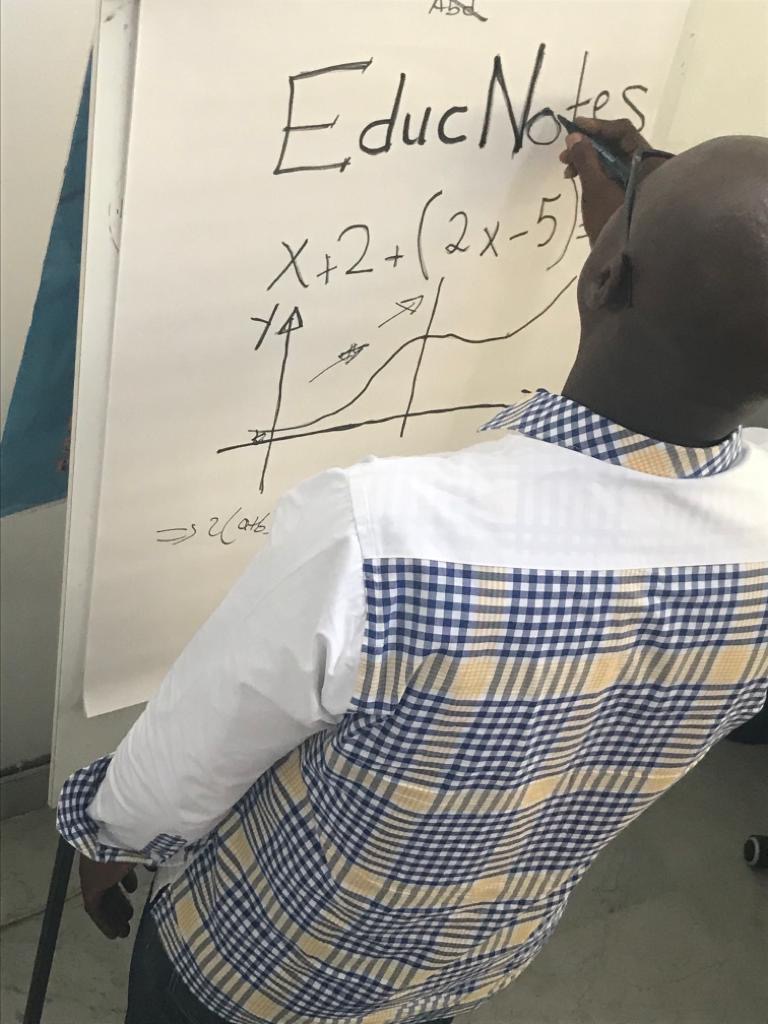 Abd
EducNotes
x+2+(2x-5)=
Y
=> 2(a+b